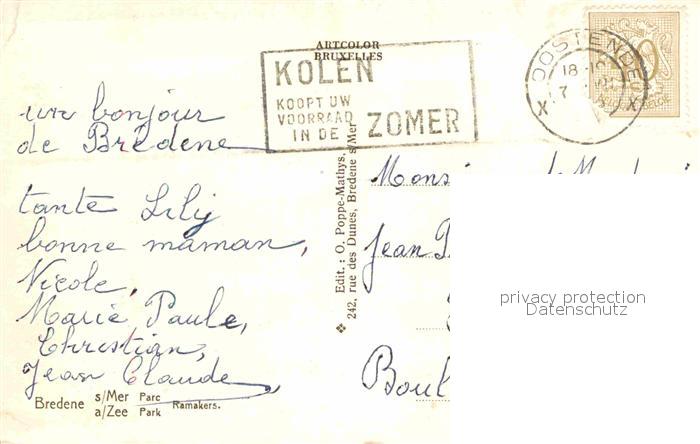 ARTCOLOR
BRUXELLES
KOLEN
KOOPT UW
VOORRAAD
IN DE ZOMER
OOSTENDE
18
7
X X
un bonjour
de Bredene
tante Lily
bonne maman,
Nicole,
Marie Paule,
Christian,
Jean Claude,
Bredene s/Mer Parc Ramakers.
a/Zee Park
Edit.: O. Poppe-Mathys,
242, rue des Dunes, Bredene s/Mer
Jean
privacy protection
Datenschutz